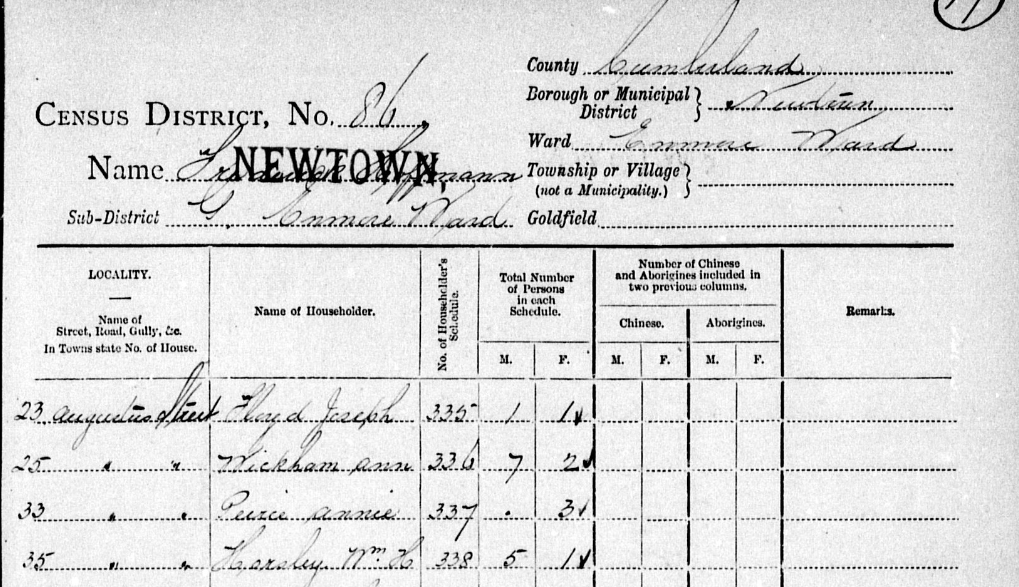 77
County Cumberland
Borough or Municipal District } Newtown
CENSUS DISTRICT, No. 86.
Ward Enmore Ward
Name Frederick Hoffmann
NEWTOWN,
Township or Village (not a Municipality.) }
Sub-District G. Enmore Ward
Goldfield
LOCALITY.
Name of
Street, Road, Gully, &c.
In Towns state No. of House.
Name of Householder.
No. of Householder's Schedule.
Total Number of Persons in each Schedule.
M. F.
Number of Chinese and Aborigines included in two previous columns.
Chinese. Aborigines.
M. F. M. F.
Remarks.
23 Augustus Street Floyd Joseph 335 1 1✓
25 " " Wickham Ann 336 7 2✓
33 " " Peirie Annie 337 . 3✓
35 " " Horsley Wm H 338 5 1✓